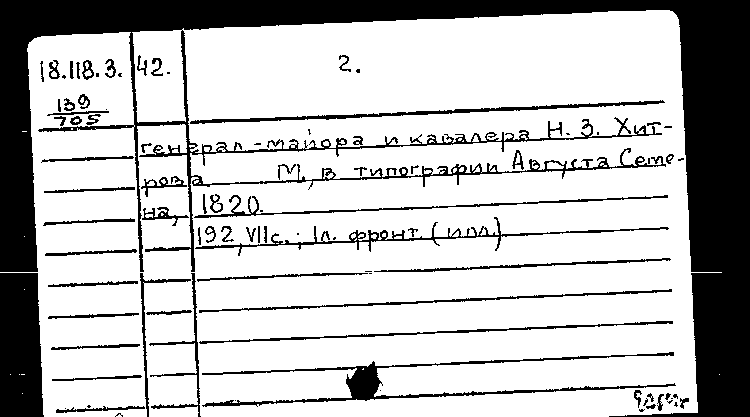 18.118.3. 42. 2.
139
705
генерал-майора и кавалера Н. З. Хит-
рова М., в типографии Августа Семе-
на, 1820.
192, VII с.; 1л. фронт. (илл.)